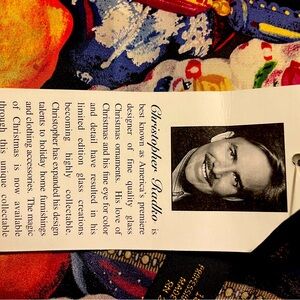 Christopher Radko
best known as America's premiere
designer of fine quality glass
Christmas ornaments. His love of
Christmas and his fine eye for color
and detail have resulted in his
limited edition glass creations
becoming highly collectable.
Christopher has expanded his design
talents to holiday home furnishings
and clothing accessories. The magic
of Christmas is now available
through this unique collectable